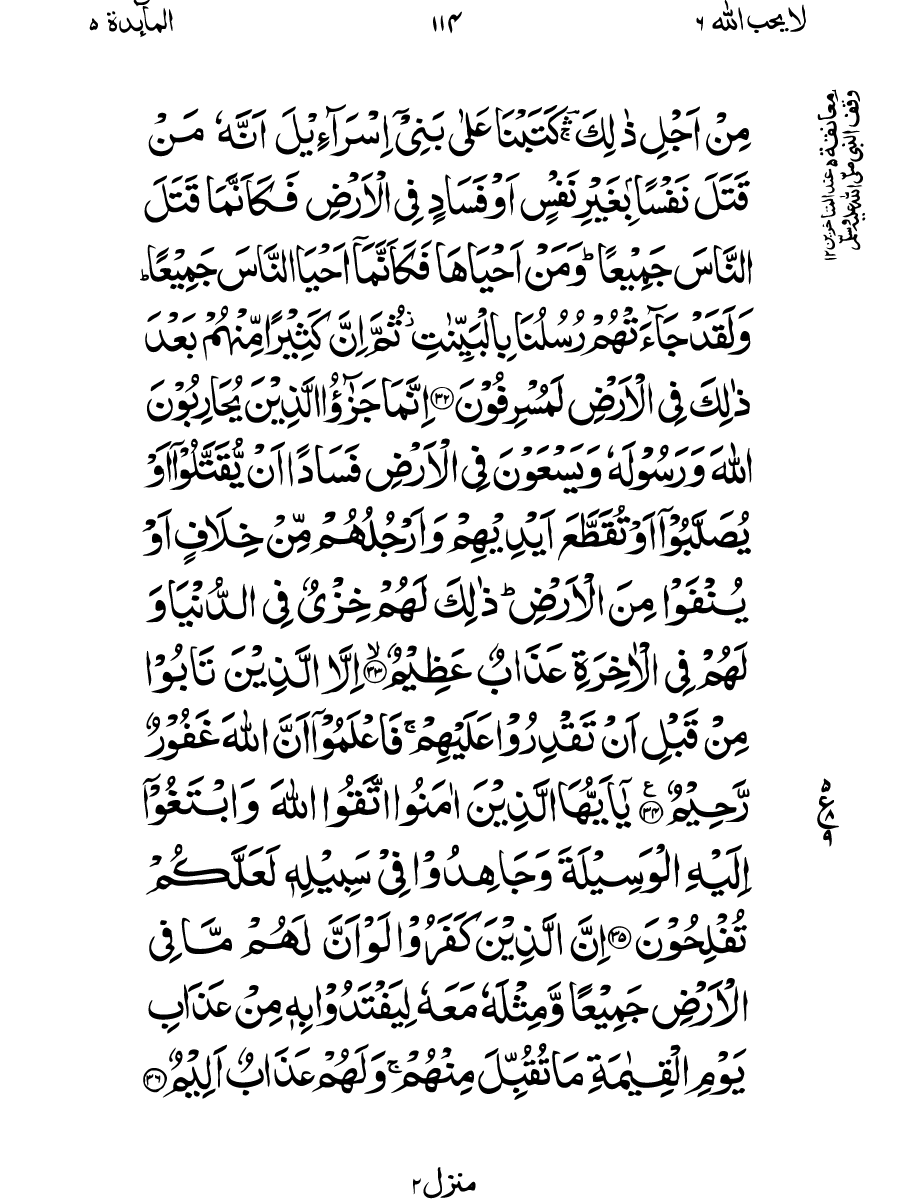 لا يحب الله ٦
١١٤
المآئدة ٥
مِنْ اَجْلِ ذٰلِكَ ۛۚ كَتَبْنَا عَلٰى بَنِىْۤ اِسْرَآءِيْلَ اَنَّهٗ مَنْ
قَتَلَ نَفْسًۢا بِغَيْرِ نَفْسٍ اَوْ فَسَادٍ فِى الْاَرْضِ فَكَاَنَّمَا قَتَلَ
النَّاسَ جَمِيْعًا ؕ وَمَنْ اَحْيَاهَا فَكَاَنَّمَاۤ اَحْيَا النَّاسَ جَمِيْعًا ؕ
وَلَقَدْ جَآءَتْهُمْ رُسُلُنَا بِالْبَيِّنٰتِ ز ثُمَّ اِنَّ كَثِيْرًا مِّنْهُمْ بَعْدَ
ذٰلِكَ فِى الْاَرْضِ لَمُسْرِفُوْنَ ﴿۳۲﴾ اِنَّمَا جَزٰٓؤُا الَّذِيْنَ يُحَارِبُوْنَ
اللّٰهَ وَرَسُوْلَهٗ وَيَسْعَوْنَ فِى الْاَرْضِ فَسَادًا اَنْ يُّقَتَّلُوْۤا اَوْ
يُصَلَّبُوْۤا اَوْ تُقَطَّعَ اَيْدِيْهِمْ وَاَرْجُلُهُمْ مِّنْ خِلَافٍ اَوْ
يُنْفَوْا مِنَ الْاَرْضِ ؕ ذٰلِكَ لَهُمْ خِزْىٌ فِى الدُّنْيَا وَ
لَهُمْ فِى الْاٰخِرَةِ عَذَابٌ عَظِيْمٌ ﴿۳۳﴾ ۙ اِلَّا الَّذِيْنَ تَابُوْا
مِنْ قَبْلِ اَنْ تَقْدِرُوْا عَلَيْهِمْ ۚ فَاعْلَمُوْۤا اَنَّ اللّٰهَ غَفُوْرٌ
رَّحِيْمٌ ﴿۳۴﴾ ع يٰۤاَيُّهَا الَّذِيْنَ اٰمَنُوا اتَّقُوا اللّٰهَ وَابْتَغُوْۤا
اِلَيْهِ الْوَسِيْلَةَ وَجَاهِدُوْا فِىْ سَبِيْلِهٖ لَعَلَّكُمْ
تُفْلِحُوْنَ ﴿۳۵﴾ اِنَّ الَّذِيْنَ كَفَرُوْا لَوْ اَنَّ لَهُمْ مَّا فِى
الْاَرْضِ جَمِيْعًا وَّمِثْلَهٗ مَعَهٗ لِيَفْتَدُوْا بِهٖ مِنْ عَذَابِ
يَوْمِ الْقِيٰمَةِ مَا تُقُبِّلَ مِنْهُمْ ۚ وَلَهُمْ عَذَابٌ اَلِيْمٌ ﴿۳۶﴾
وقف النبى صلى الله عليه وسلم
معانقة ٥ عند المتاخرين ١٢
منزل ٢